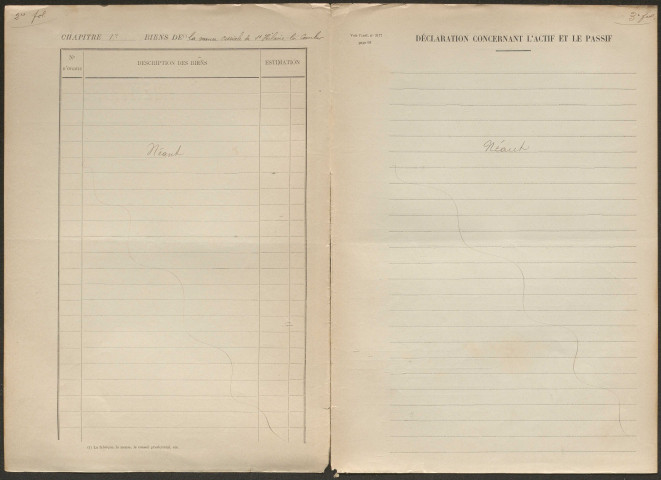 2e fol
CHAPITRE 1er BIENS DE (1) la mense curiale de St Hilaire la Combe
Nos
D'ORDRE
DESCRIPTION DES BIENS
ESTIMATION
Néant
(1) La fabrique, la mense, le conseil presbytéral, etc.
2e fol.
DÉCLARATION CONCERNANT L'ACTIF ET LE PASSIF
Néant